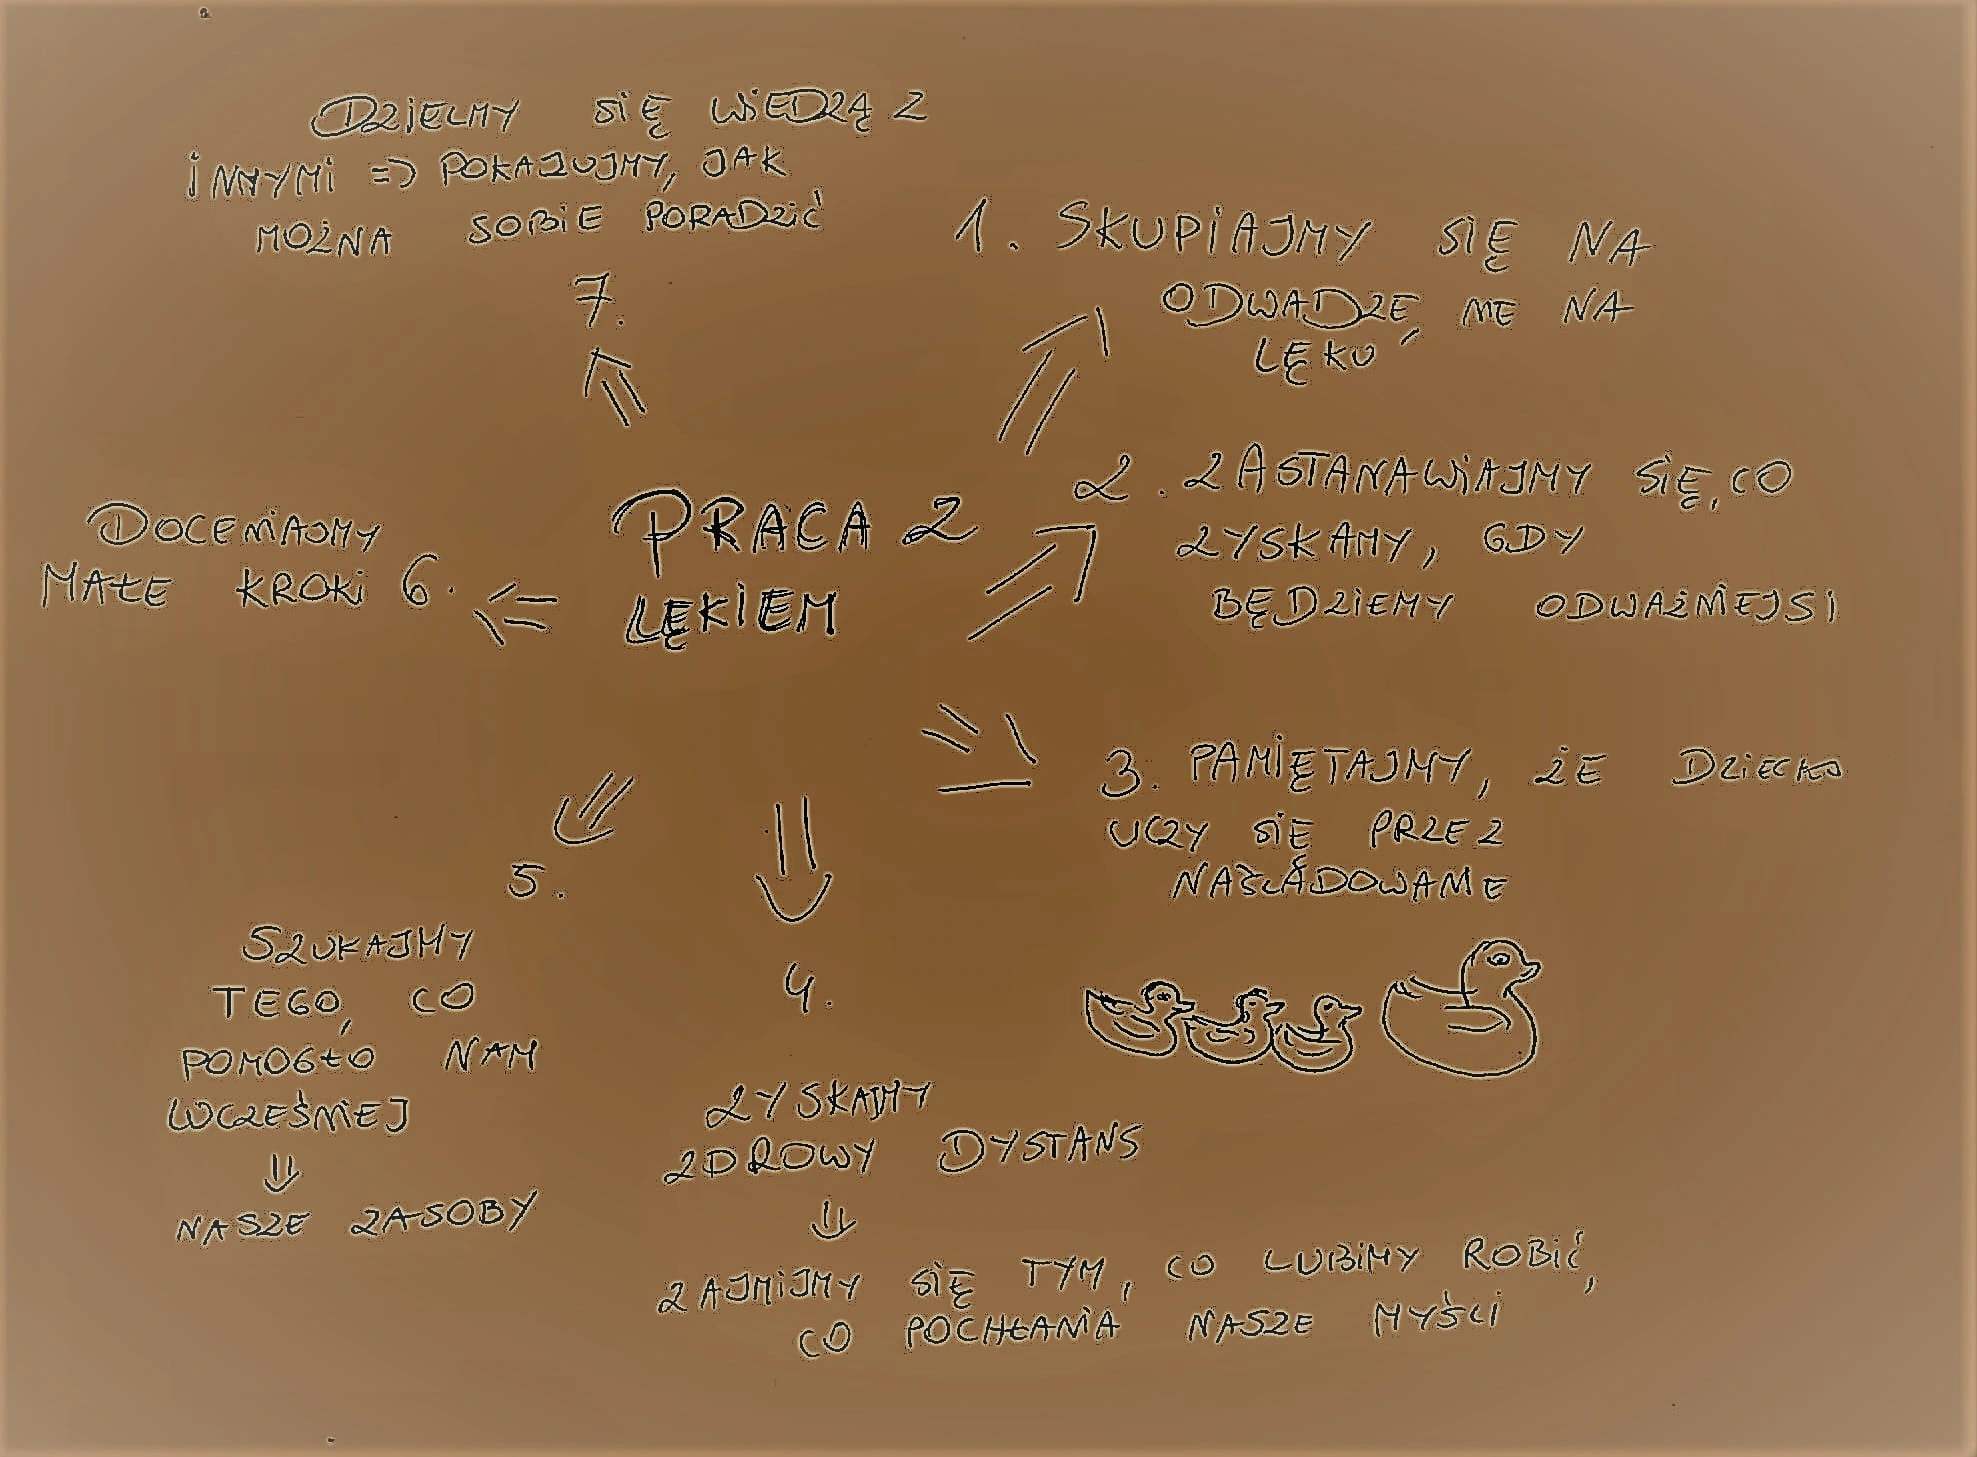 PRACA Z
LĘKIEM
1. SKUPIAJMY SIĘ NA
ODWADZE, NIE NA
LĘKU
2. ZASTANAWIAJMY SIĘ, CO
ZYSKAMY, GDY
BĘDZIEMY ODWAŻNIEJSI
3. PAMIĘTAJMY, ŻE DZIECKO
UCZY SIĘ PRZEZ
NAŚLADOWANIE
4.
ZYSKAJMY
ZDROWY DYSTANS
⇓
ZAJMIJMY SIĘ TYM, CO LUBIMY ROBIĆ,
CO POCHŁANIA NASZE MYŚLI
5.
SZUKAJMY
TEGO, CO
POMOGŁO NAM
WCZEŚNIEJ
⇓
NASZE ZASOBY
DOCENIAJMY
MAŁE KROKI 6.
DZIELMY SIĘ WIEDZĄ Z
INNYMI => POKAZUJMY, JAK
MOŻNA SOBIE PORADZIĆ
7.